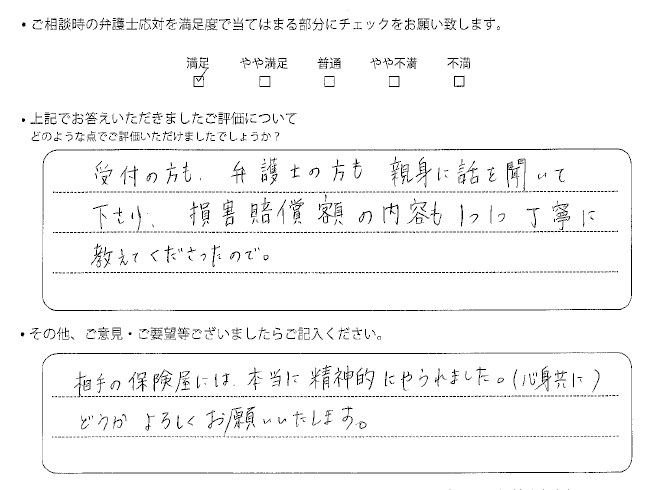 ・ご相談時の弁護士応対を満足度で当てはまる部分にチェックをお願い致します。
満足 やや満足 普通 やや不満 不満
・上記でお答えいただきましたご評価について
どのような点でご評価いただけましたでしょうか？
受付の方も、弁護士の方も 親身に話を聞いて
下さり、損害賠償額の内容も1つ1つ丁寧に
教えてくださったので。
・その他、ご意見・ご要望等ございましたらご記入ください。
相手の保険屋には、本当に精神的にやられました。(心身共に)
どうか よろしくお願いいたします。